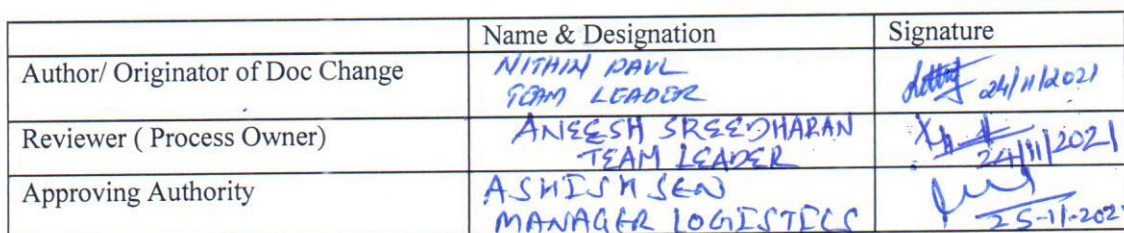 Name & Designation Signature
Author/ Originator of Doc Change NITHIN PAUL 24/11/2021
TEAM LEADER
Reviewer ( Process Owner) ANEESH SREEDHARAN
TEAM LEADER 24/11/2021
Approving Authority ASHISH SEN
MANAGER LOGISTICS 25-11-202